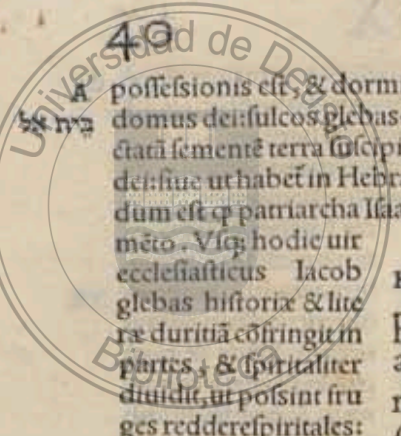 40
A possessionis est, & dormi
בית אל domus dei: sulcos glebas
ctatā sementē terra suscipi
dei: siue ut habet̄ in Hebra
dum est ꝙ patriarcha Isaa
mēto. Vsq; hodie uir
ecclesiasticus Iacob
glebas historiæ & lite
ræ duritiā cōfringit in
partes, & spiritaliter
diuidit, ut possint fru
ges reddere spiritales:
Universidad de
Biblioteca